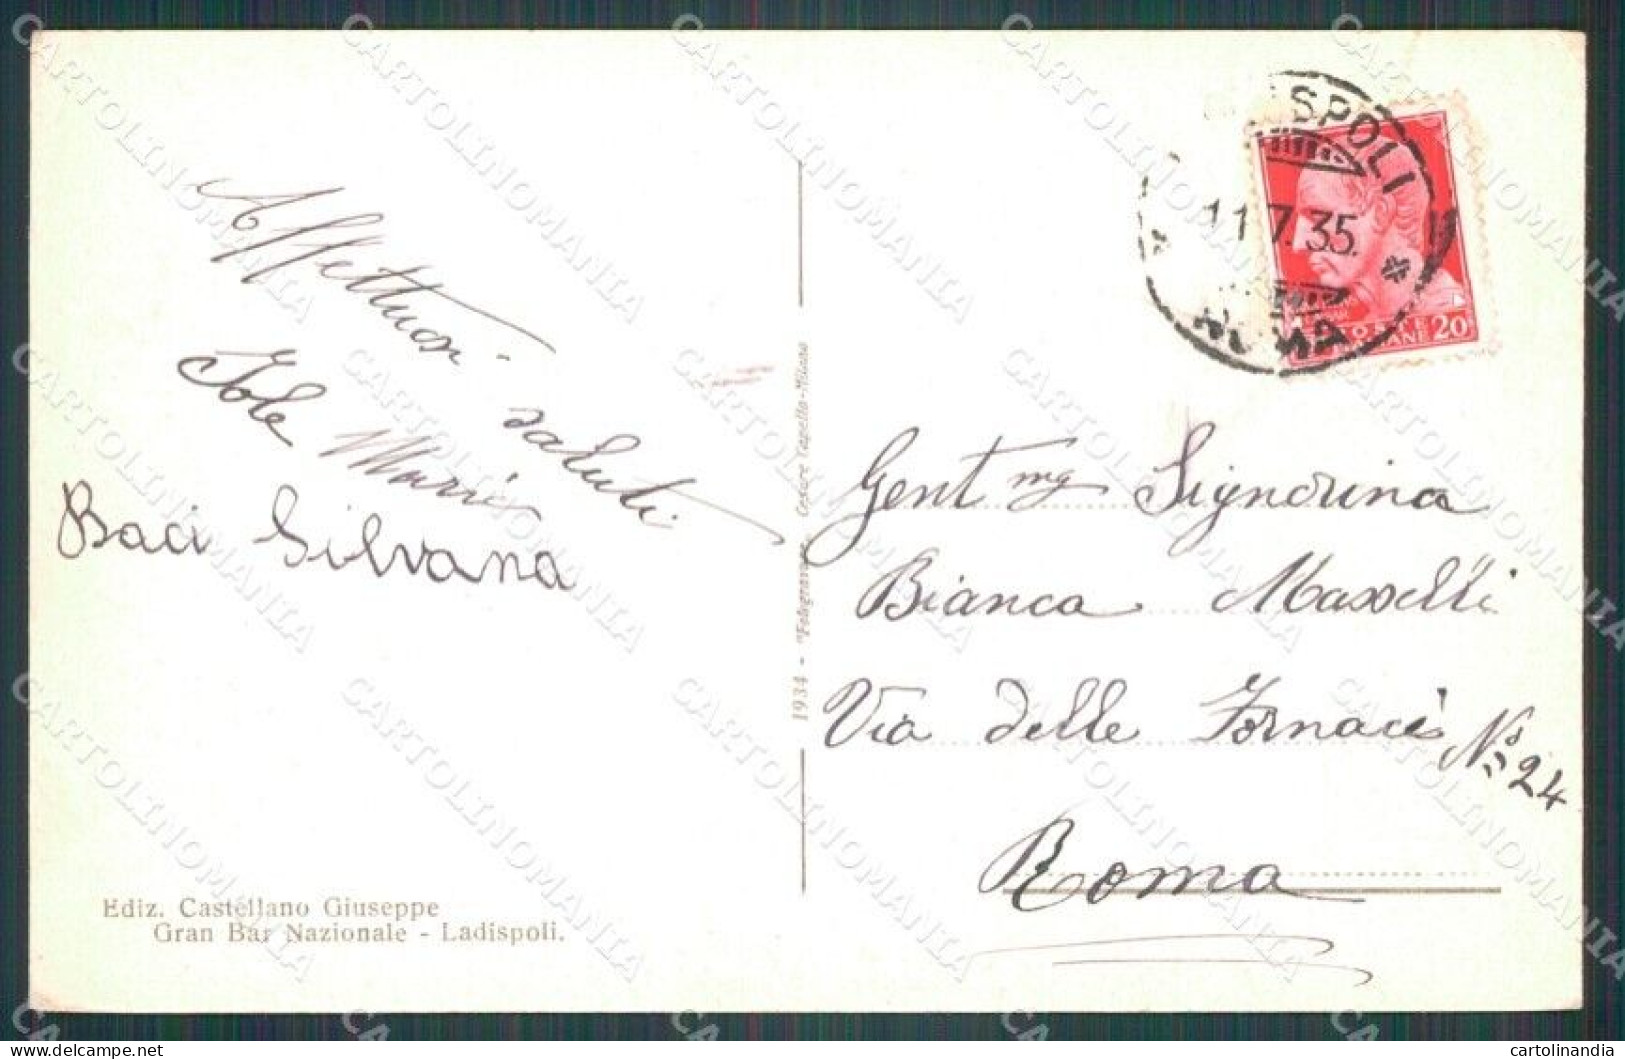 Affettuosi saluti
Iole Maria
Baci Silvana
Ediz. Castellano Giuseppe
Gran Bar Nazionale - Ladispoli.
1934 - "Fotogravure" Cesare Capello-Milano
SPOLI
11.7.35
ROMA
20
Gent.mg Signorina
Bianca Masselli
Via delle Fornaci
N° 24
Roma
CARTOLINOMANIA
cartolinandia